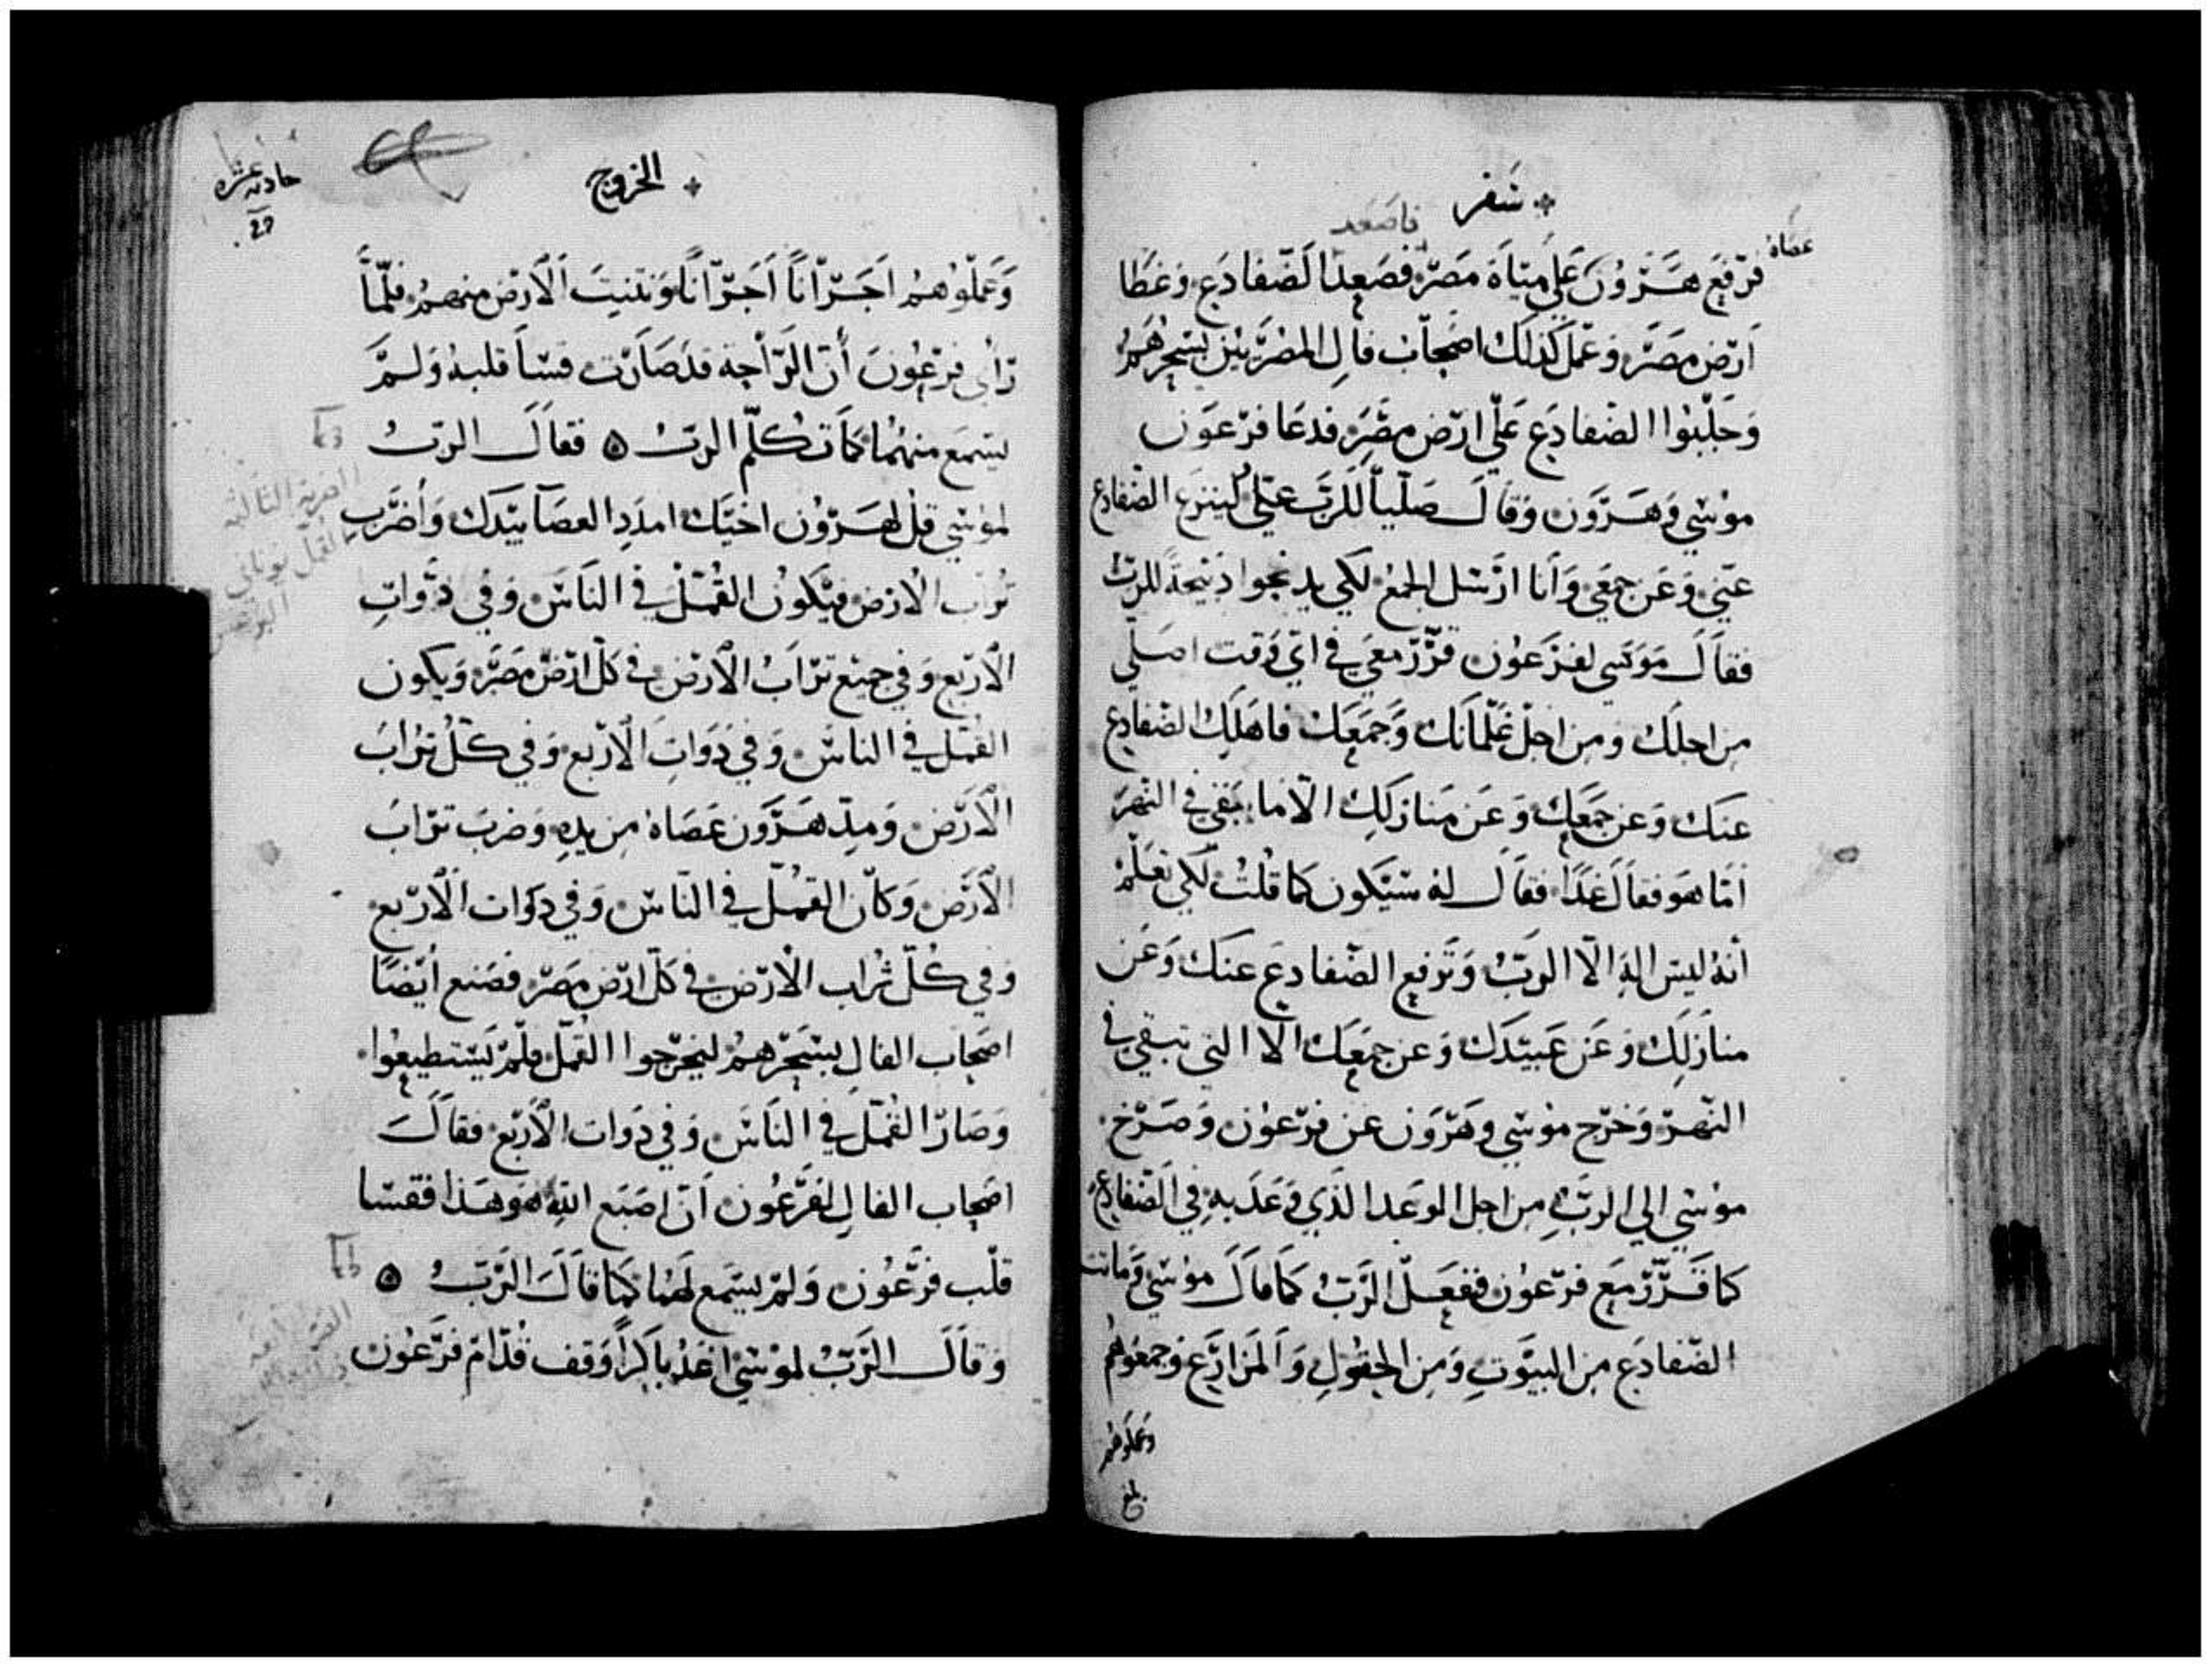 سفر
فاصعد
عصاه
فرفع هرون علي مياة مصر فصعدا لضفادع وغطا
ارض مصر وعمل كذلك اصحاب فال المصريين بسحرهم
وجلبوا الضفادع علي ارض مصر فدعا فرعون
موسي وهرون وقال صليا للرب عني لينزع الضفادع
عني وعن جمعي وانا ارسل الجمع لكي يدبحوا ذبيحة للرب
فقال موسي لفرعون قرر معي في اي وقت اصلي
من اجلك ومن اجل غلمانك وجمعك فاهلك الضفادع
عنك وعن جمعك وعن منازلك الا ما بقي في النهر
اما هو فقال غدا فقال له سيكون كما قلت لكي تعلم
انه ليس اله الا الرب وترفع الضفادع عنك وعن
منازلك وعن عبيدك وعن جمعك الا التي تبقي في
النهر وخرج موسي وهرون عن فرعون وصرخ
موسي الي الرب من اجل الوعد الذي وعد به في الضفادع
كما قرر مع فرعون ففعل الرب كما قال موسي وماتت
الضفادع من البيوت ومن الحقول والمزارع وجمعوهم
وعملوهم
بلغ
الخروج
حادية عشره
وعملوهم اجرانا اجرانا ونتنت الارض منهم فلما
راي فرعون ان الراحة قد صارت قسا قلبه ولم
يسمع منهما كما تكلم الرب ۞ فقال الرب
لموسي قل لهرون اخيك امدد العصا بيدك واضرب
تراب الارض فيكون القمل في الناس وفي دوات
الاربع وفي جميع تراب الارض في كل ارض مصر ويكون
القمل في الناس وفي دوات الاربع وفي كل تراب
الارض ومد هرون عصاه من يده وضرب تراب
الارض وكان القمل في الناس وفي دوات الاربع
وفي كل تراب الارض في كل ارض مصر فصنع ايضا
اصحاب الفال بسحرهم ليخرجوا القمل فلم يستطيعوا
وصار القمل في الناس وفي دوات الاربع فقال
اصحاب الفال لفرعون ان اصبع الله هو هذا فقسا
قلب فرعون ولم يسمع لهما كما قال الرب ۞
وقال الرب لموسي اغد باكرا وقف قدام فرعون
الضربة الثالثة
القمل